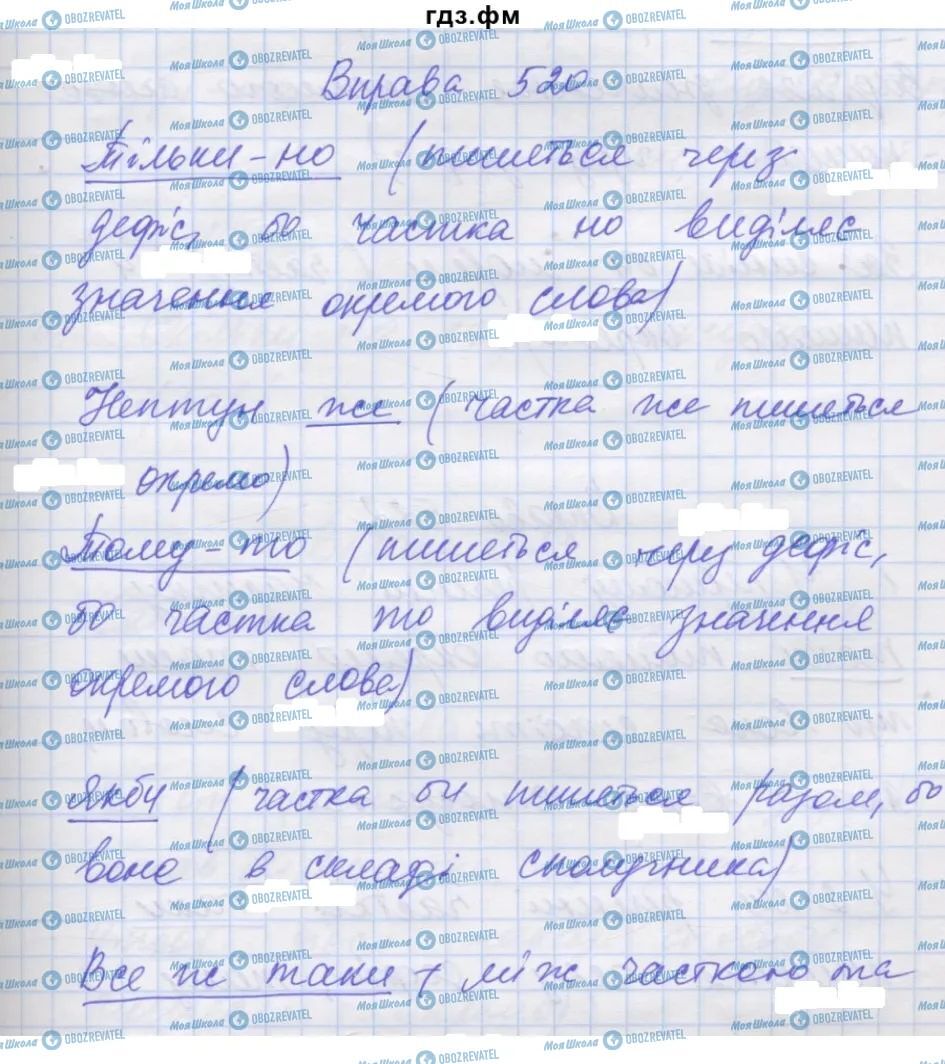 гдз.фм
Вправа 520
Тільки-но (пишеться через
дефіс, бо частка но виділяє
значення окремого слова)
Нептун же (частка же пишеться
окремо)
Тому-то (пишеться через дефіс,
бо частка то виділяє значення
окремого слова)
Якби (частка би пишеться разом, бо
воно в складі сполучника)
Все ж таки + між часткою та
Моя Школа OBOZREVATEL